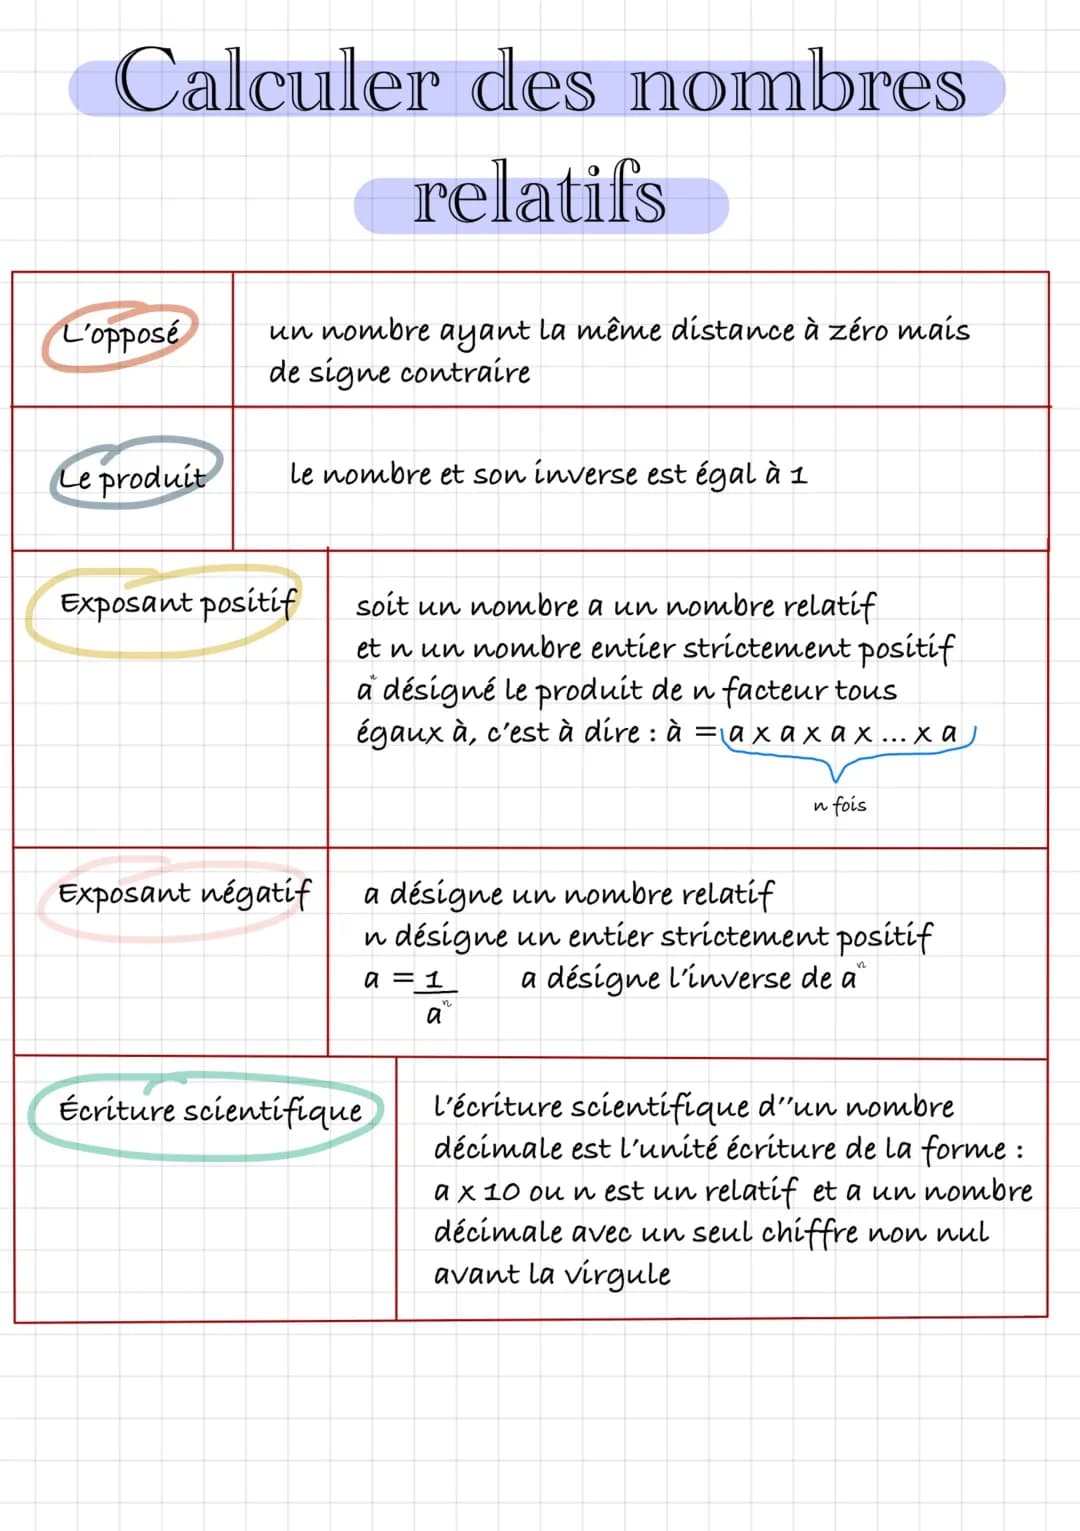 Calculer des nombres
relatifs
L'opposé
un nombre ayant la même distance à zéro mais
de signe contraire
Le produit
le nombre et son inverse est égal à 1
Exposant positif
soit un nombre a un nombre relatif
et n un nombre entier strictement positif
aⁿ désigné le produit de n facteur tous
égaux à, c'est à dire : à = a x a x a x ... x a
n fois
Exposant négatif
a désigne un nombre relatif
n désigne un entier strictement positif
a = 1 a désigne l'inverse de aⁿ
aⁿ
Écriture scientifique
l'écriture scientifique d''un nombre
décimale est l'unité écriture de la forme :
a x 10 ou n est un relatif et a un nombre
décimale avec un seul chiffre non nul
avant la virgule